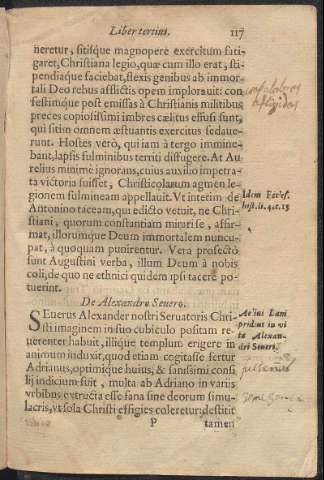 Liber tertius. 117
neretur, sitisque magnopere exercitum fati-
garet, Christiana legio, quæ cum illo erat, sti-
pendiaque faciebat, flexis genibus ab immor-
tali Deo rebus afflictis opem implorauit: con-
festimque post emissas à Christianis militibus
preces copiosissimi imbres cælitus effusi sunt,
qui sitim omnem æstuantis exercitus sedaue-
runt. Hostes verò, qui iam à tergo immine-
bant, lapsis fulminibus territi diffugere. At Au-
relius minimè ignorans, cuius auxilio impetra-
ta victoria fuisset, Christicolarum agmen le-
gionem fulmineam appellauit. Vt interim de
Antonino taceam, qui edicto vetuit, ne Chri-
stiani, quorum constantiam mirari se, affir-
mat, illorumque Deum immortalem nuncu-
pat, à quoquam punirentur. Vera profectò
sunt Augustini verba, illum Deum à nobis
coli, de quo ne ethnici quidem ipsi tacere po-
tuerint.
Idem Eus'ef.
hist. li. 4. c. 13
De Alexandro Seuero.
SEuerus Alexander nostri Seruatoris Chri-
sti imaginem in suo cubiculo positam re-
uerenter habuit, illique templum erigere in
animum induxit, quod etiam cogitasse fertur
Adrianus, optimique huius, & sanissimi consi
lij indicium fuit, multa ab Adriano in variis
vrbibus extructa esse fana sine deorum simu-
lacris, vt sola Christi effigies coleretur, destitit
Aelius Lam
pridius in vi
ta Alexan-
dri Seueri.
P tamen